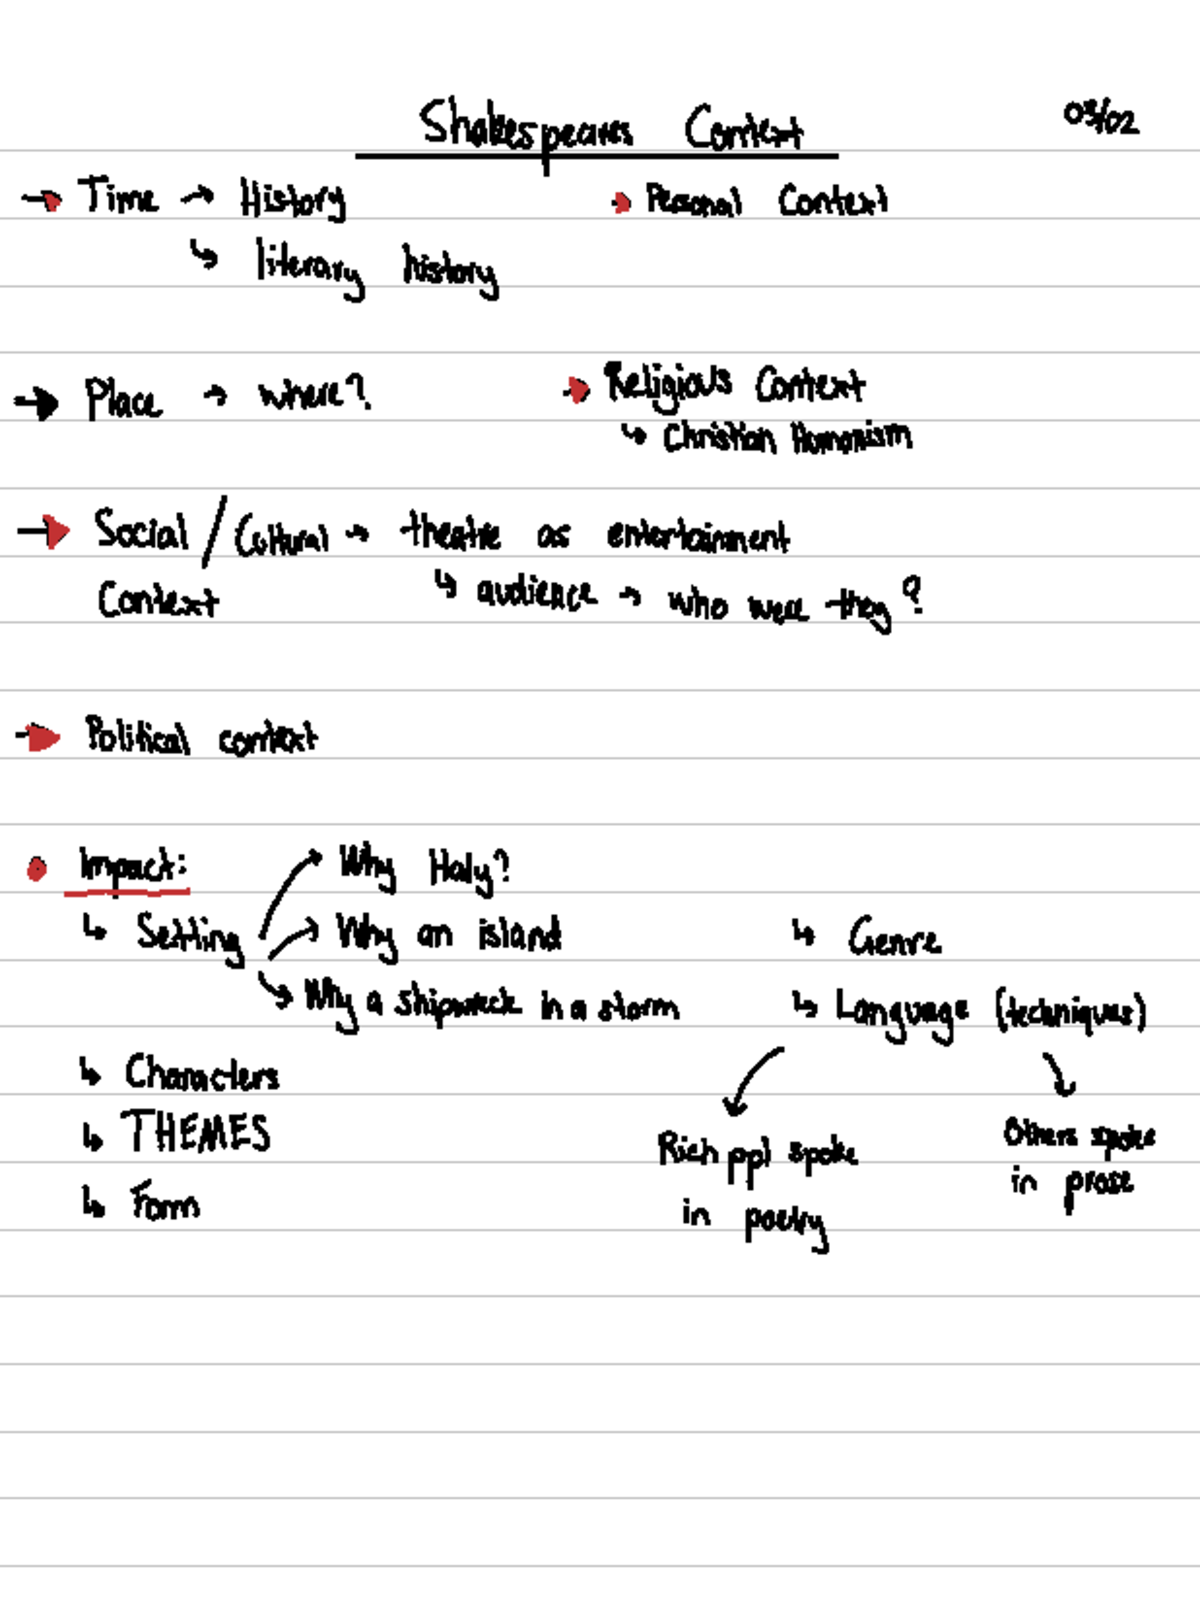 Shakespeares Context 03/02
→ Time → History
↳ literary history
→ Personal Context
→ Place → where?
→ Religious Context
↳ Christian Humanism
→ Social / Cultural → theatre as entertainment
Context
↳ audience → who were they?
→ Political context
• Impact:
↳ Setting
→ Why Italy?
→ Why an island
→ Why a shipwreck in a storm
↳ Characters
↳ THEMES
↳ Form
↳ Genre
↳ Language (techniques)
Rich ppl spoke
in poetry
Others spoke
in prose